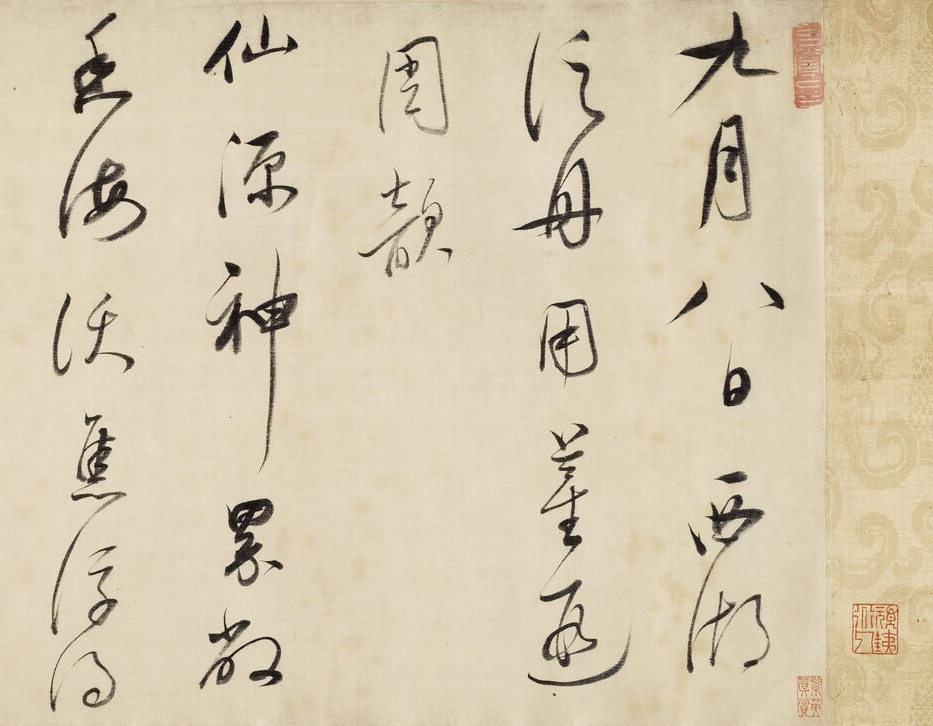 九月八日西湖
泛舟用董遐
周韻
仙源神累敞
海沃焦浮得